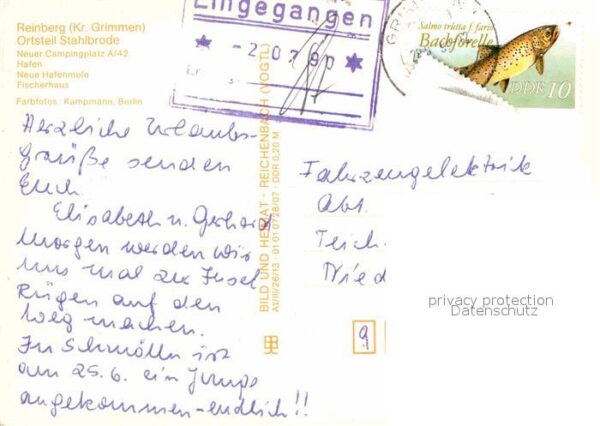 Reinberg (Kr. Grimmen)
Ortsteil Stahlbrode
Neuer Campingplatz A/42
Hafen
Neue Hafenmole
Fischerhaus
Farbfotos: Kampmann, Berlin
Eingegangen
- 2.07.90
Salmo trutta f. fario
Bachforelle
DDR 10
Herzliche Urlaubs-
grüße senden
Euch
Elisabeth u. Gerhard
Morgen werden wir
uns mal zur Insel
Rügen auf den
Weg machen.
In Schmölln ist
am 25.6. ein Junge
angekommen-endlich!!
BILD UND HEIMAT · REICHENBACH (VOGTL)
A1/III/26/13 · 01 01 0728/07 · DDR 0,20 M
Fahrzeugelektrik
Abt.
Teich
Nied
privacy protection
Datenschutz
9